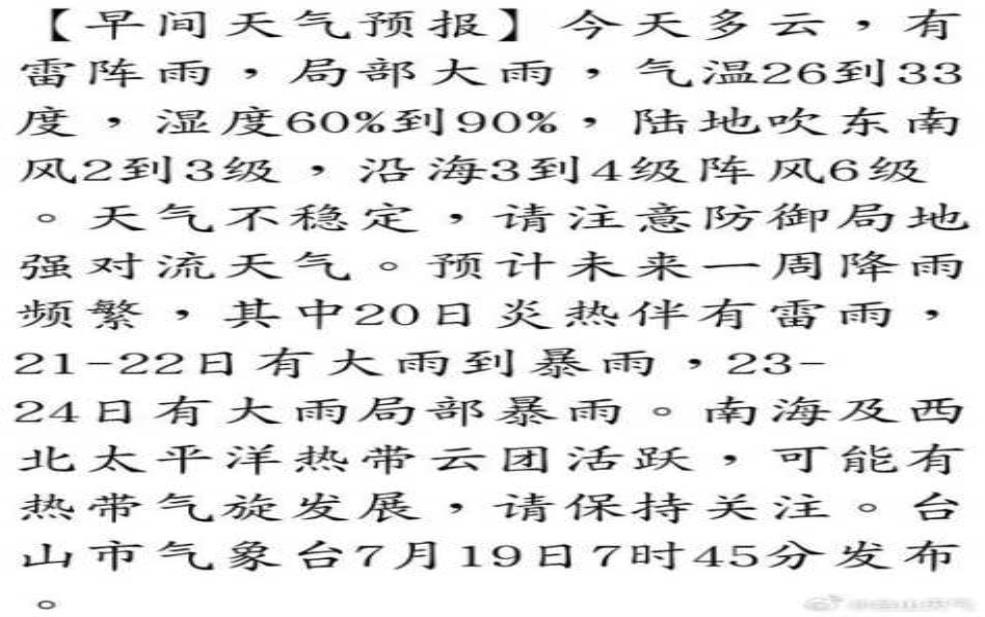 【早间天气预报】今天多云，有
雷阵雨，局部大雨，气温26到33
度，湿度60%到90%，陆地吹东南
风2到3级，沿海3到4级阵风6级
。天气不稳定，请注意防御局地
强对流天气。预计未来一周降雨
频繁，其中20日炎热伴有雷雨，
21-22日有大雨到暴雨，23-
24日有大雨局部暴雨。南海及西
北太平洋热带云团活跃，可能有
热带气旋发展，请保持关注。台
山市气象台7月19日7时45分发布
。